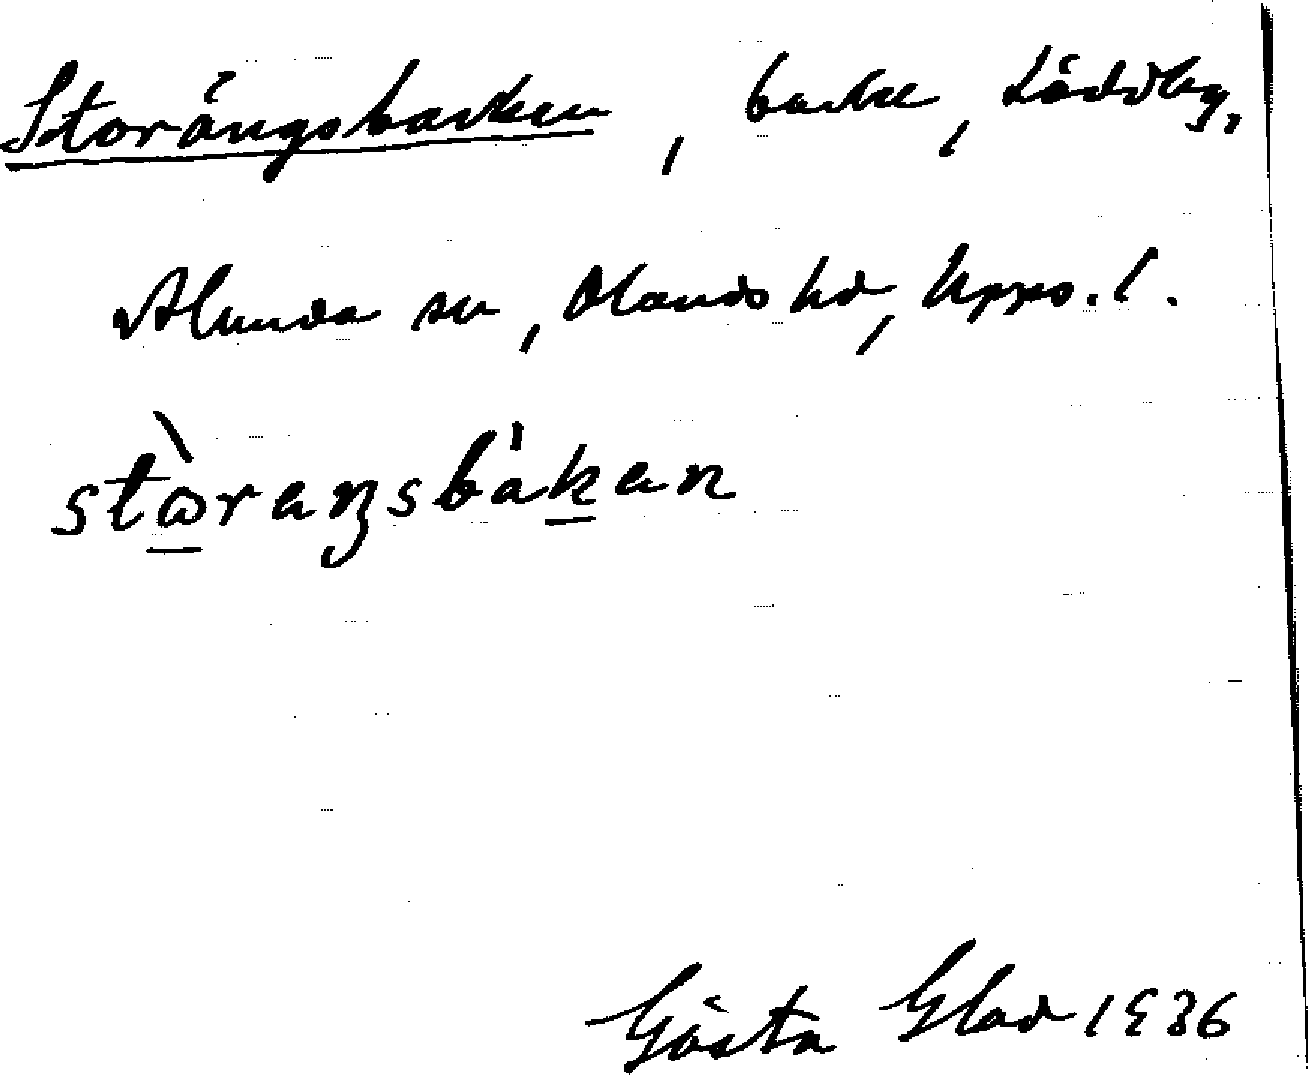 Storängsbacken, backe, Löddby,
Alunda sn, Olands hd, Upps. l.
stωraŋsbakan
Gösta Glad 1936